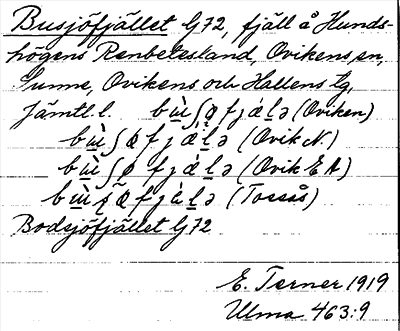 Busjöfjället G72, fjäll å Hunds-
högens Renbetesland, Ovikens sn,
Sunne, Ovikens och Hallens tg,
Jämtl. l. bùʃø̨fjǽlə (Oviken)
bùʃøfjǽlə (Ovik N.)
bùʃøfjǽlə (Ovik E A)
bùʂø̃fjǽlə (Tossås)
Bodsjöfjället G72
E. Terner 1919
Ulma 463:9